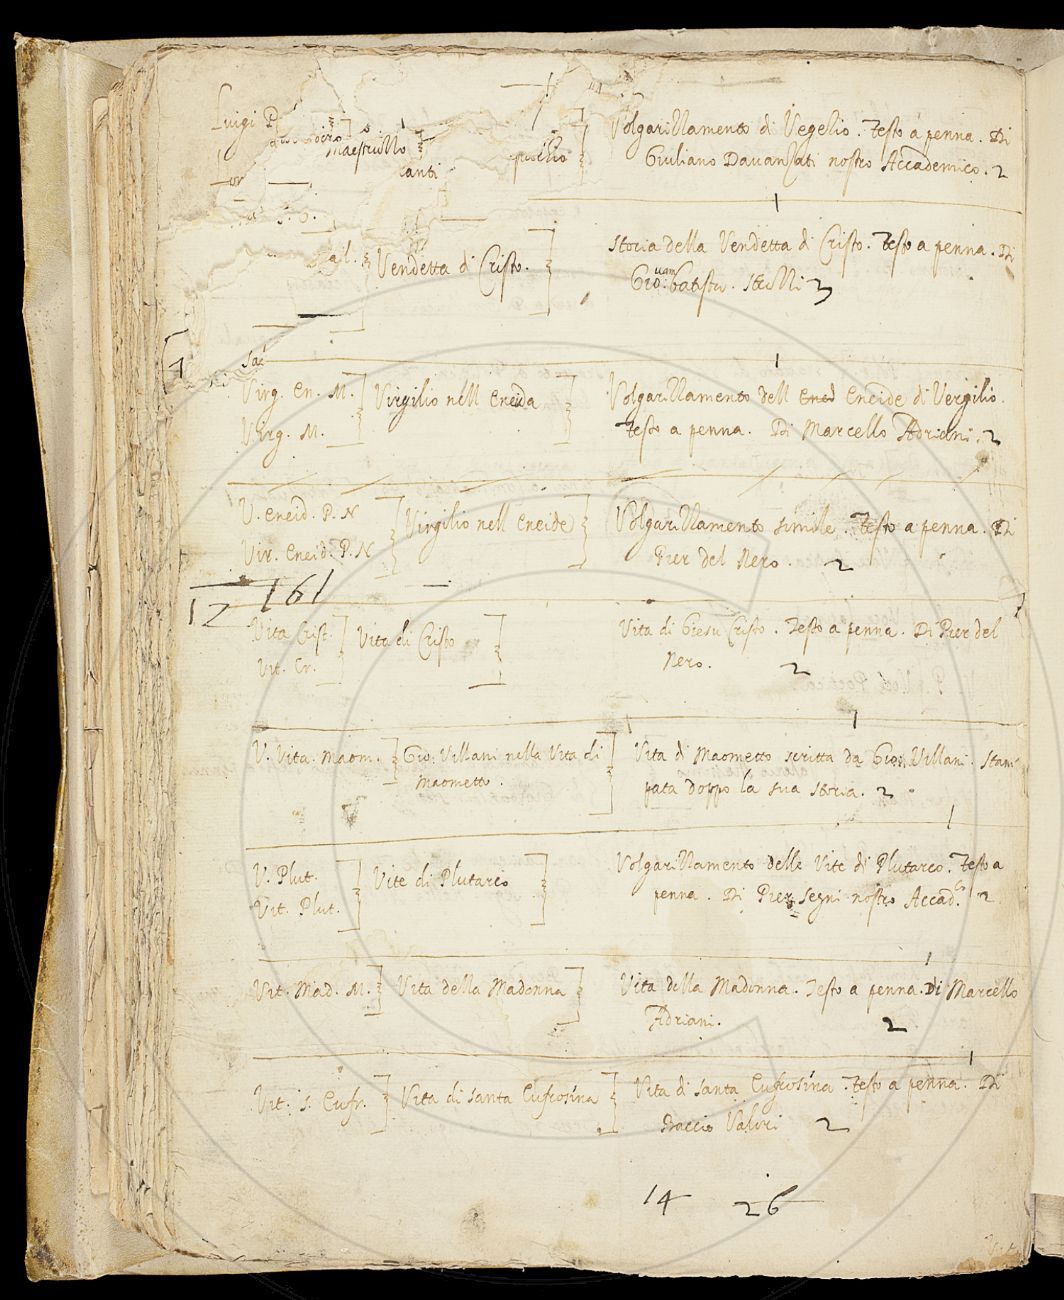 Luigi P
Maestrillo
canti
Volgarizzamento di Vegezio. Testo a penna. Di
Giuliano Davanzati nostro Accademico. 2
Vendetta di Cristo.
Storia della Vendetta di Cristo. Testo a penna. Di
Gio: uam batista. Stritti 2
Virg. En. M.
Virg. M.
Virgilio nell Eneida
Volgarizzamento dell Ened Eneide di Vergilio.
Testo a penna. Di Marcello Adriani. 2
V. Eneid. P. N
Vir. Eneid. P. N
Virgilio nell Eneide
Volgarizzamento simile. Testo a penna. Di
Pier del Nero. 2
17 161
Vita Crist.
Vit. Cr.
Vita di Cristo
Vita di Giesu Cristo. Testo a penna. Di Pier del
Nero. 2
V. Vita. Maom.
Gio: Villani nella Vita di
Maometto.
Vita di Maometto scritta da Gio. Villani. Stam
pata doppo la sua storia. 2
V. Plut.
Vit. Plut.
Vite di Plutarco
Volgarizzamento delle Vite di Plutarco. Testo a
penna. Di Pier Segni nostro Accad.co 2
Vit. Mad. M.
Vita della Madonna
Vita della Madonna. Testo a penna. Di Marcello
Adriani. 2
Vit. s. Eufr.
Vita di santa Eufrosina
Vita di santa Eufrosina. Testo a penna. Di
Baccio Valori 2
14 26